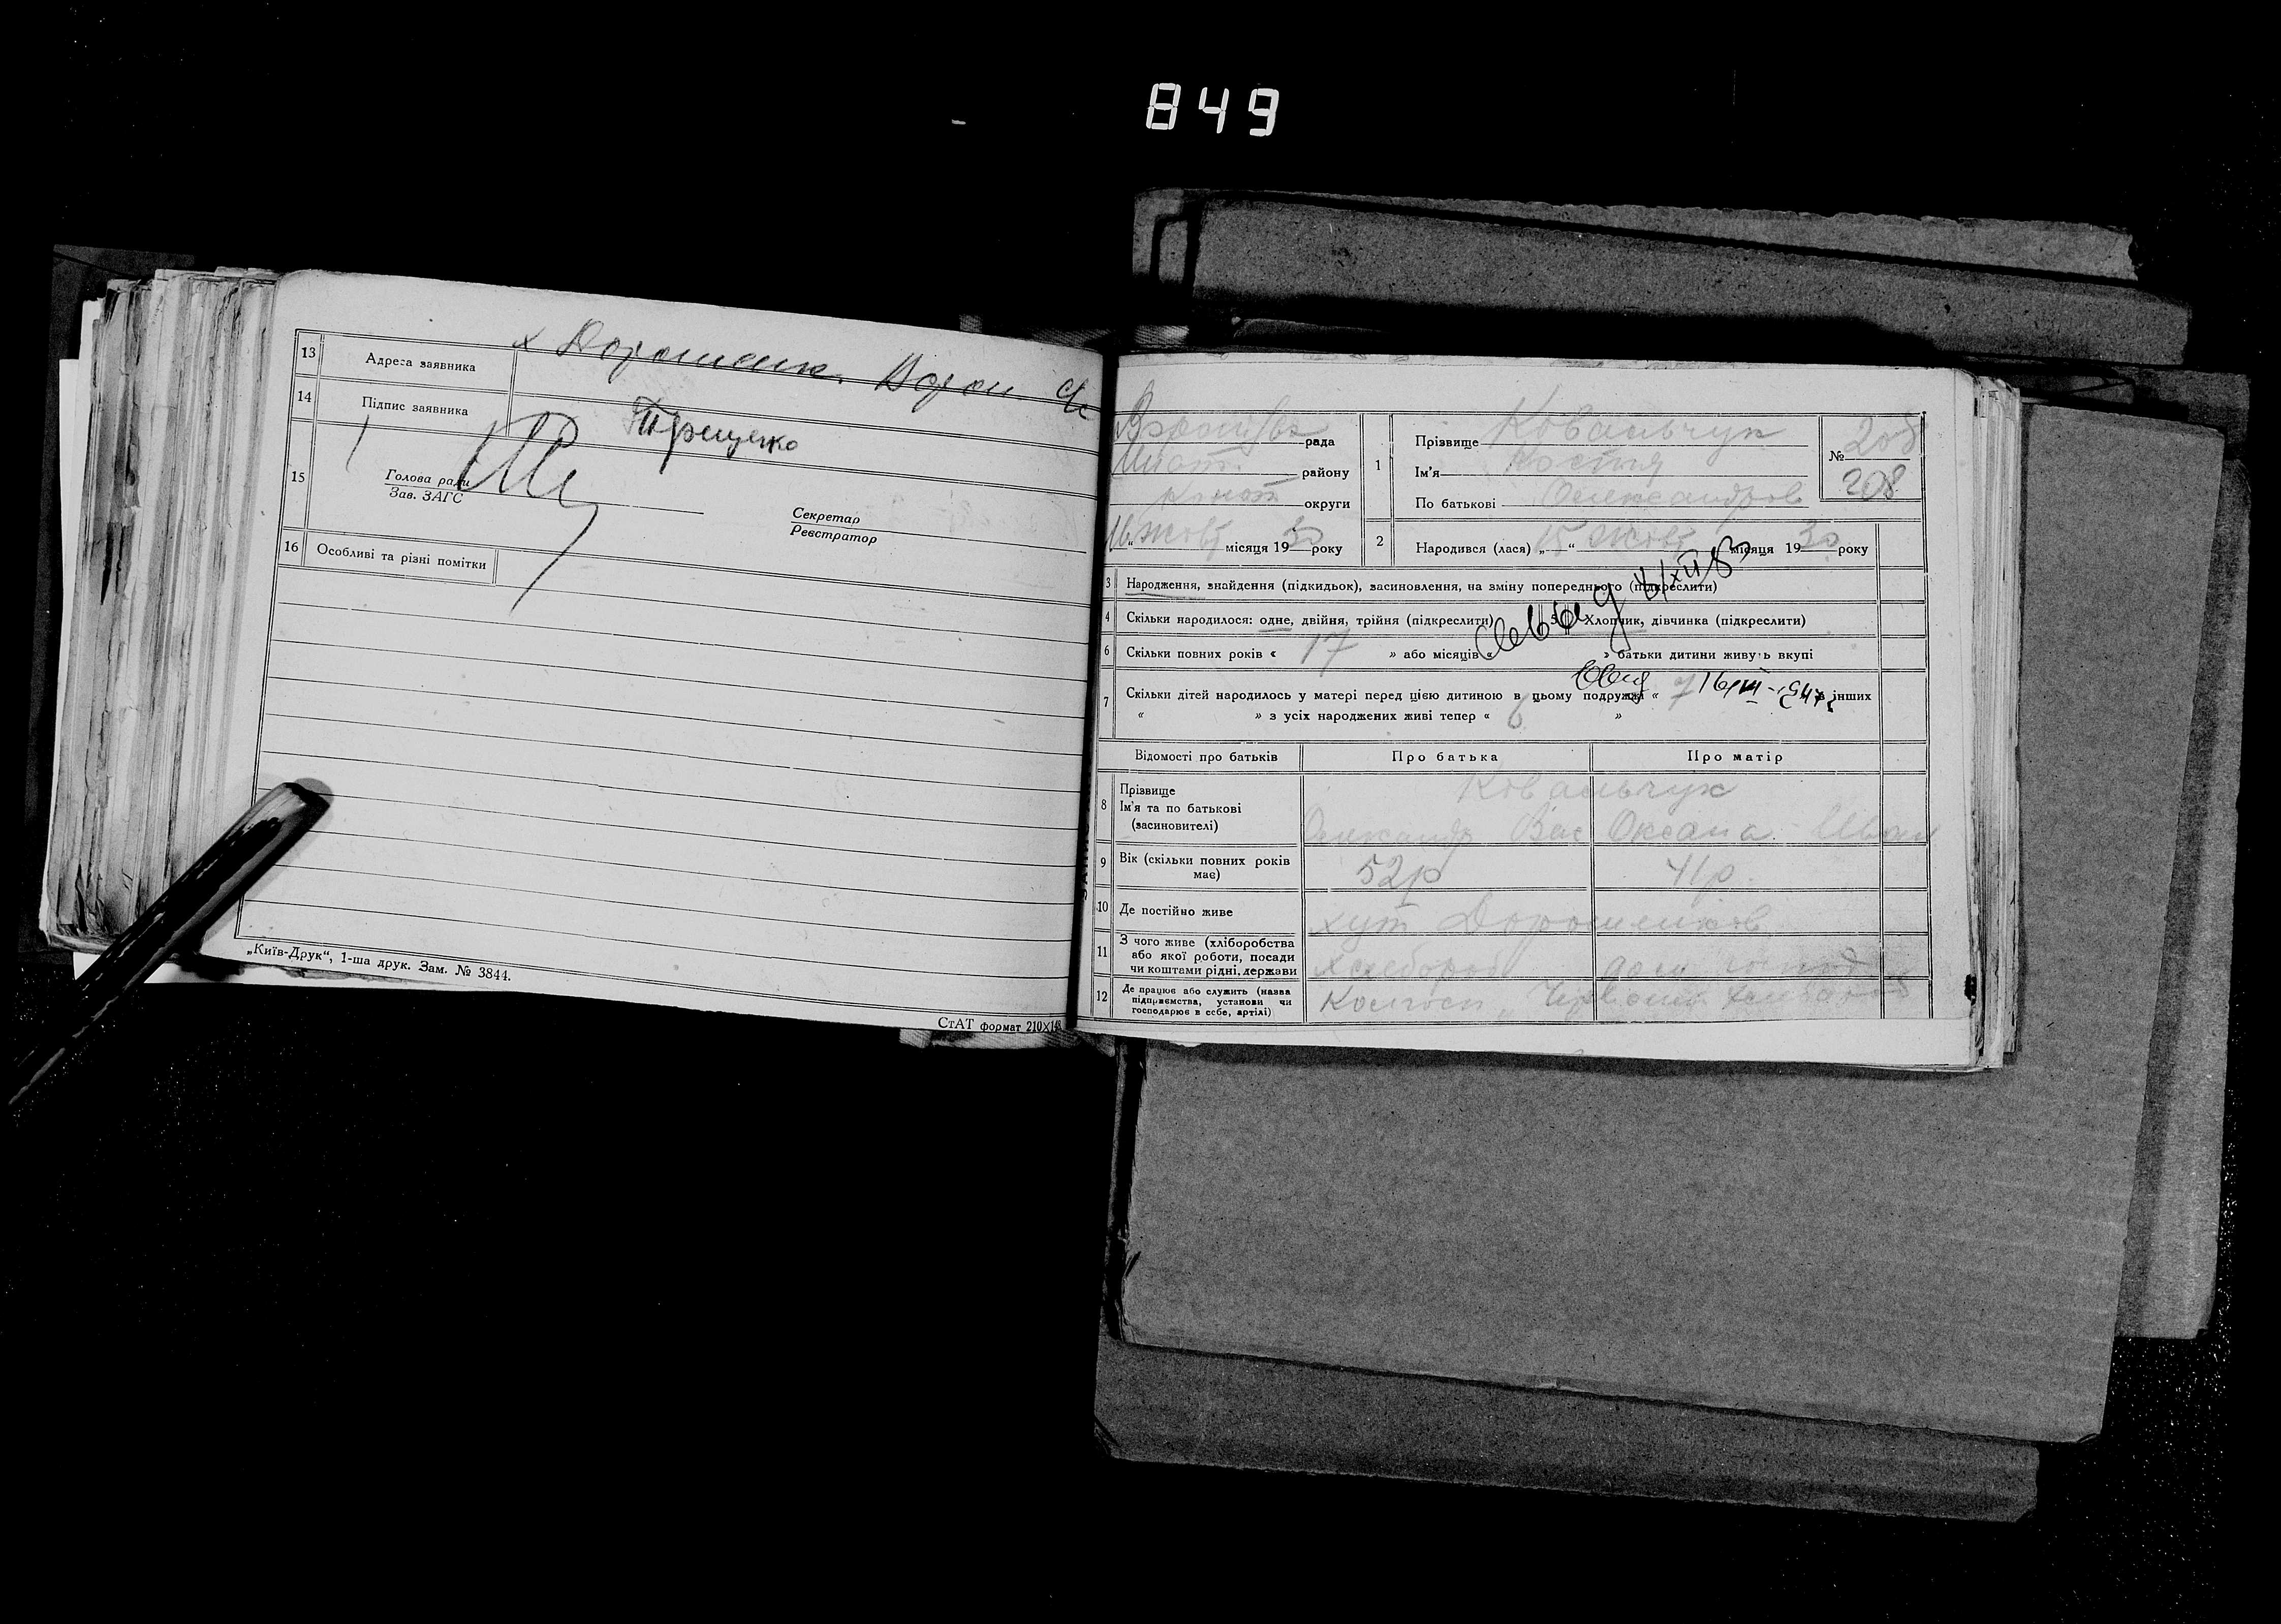 849
13 Адреса заявника х Дорошенк. Ворон с/с
14 Підпис заявника Грищенко
15 Голова ради
Зав. ЗАГС
Секретар
Реєстратор
16 Особливі та різні помітки
„Київ-Друк“, 1-ша друк. Зам. № 3844.
СтАТ формат 210×148
рада
району
Конот округи
16 Жовт місяця 1930 року
1 Прізвище Ковальчук
Ім'я Костя
По батькові Олександров
№ 208
208
2 Народився (лася) „15“ Жовт місяця 1930 року
3 Народження, знайдення (підкидьок), засиновлення, на зміну попереднього (підкреслити)
4 Скільки народилося: одне, двійня, трійня (підкреслити) 5 Хлопчик, дівчинка (підкреслити)
6 Скільки повних років « 17 » або місяців « » батьки дитини живуть вкупі
7 Скільки дітей народилось у матері перед цією дитиною в цьому подружжі « 7 в інших
« » з усіх народжених живі тепер « 6 »
16/III-1947
Відомості про батьків Про батька Про матір
8 Прізвище
Ім'я та по батькові
(засиновителі)
Ковальчук
Олександр Вас Оксана Иван
9 Вік (скільки повних років
має)
52р 41р.
10 Де постійно живе хут Дорошенков
11 З чого живе (хліборобства
або якої роботи, посади
чи коштами рідні, держави
хлебороб
12 Де працює або служить (назва
підприємства, установи чи
господарює в себе, артілі)